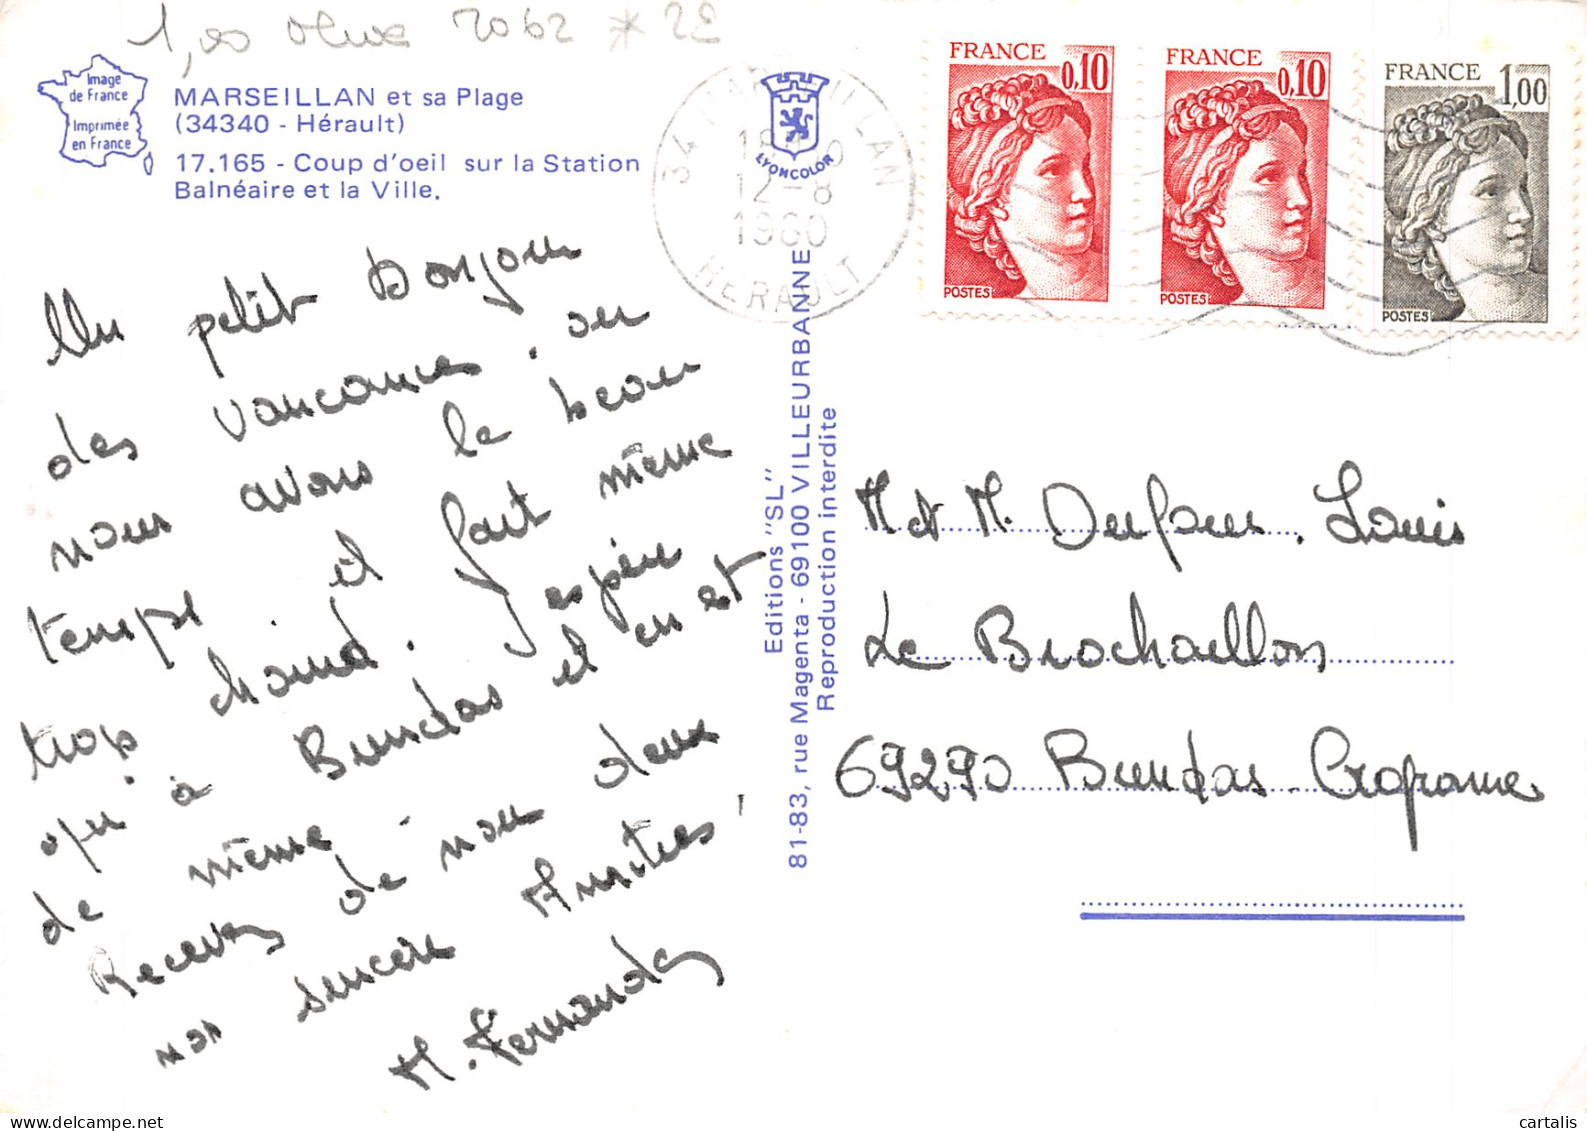 1,00 Olive 2062 * 2E
Image
de France
Imprimée
en France
MARSEILLAN et sa Plage
(34340 - Hérault)
17.165 - Coup d'oeil sur la Station
Balnéaire et la Ville.
LYONCOLOR
34 MARSEILLAN
12-8
1980
HERAULT
FRANCE
0,10
POSTES
FRANCE
0,10
POSTES
FRANCE
1,00
POSTES
Un petit bonjour
des vancances. ou
nous avons le beau
temps et fait même
trop chaud. J'espere
qu'à Brindas il en est
de même,
Recevez de nous deux
nos sincère Amitiés
M. Fernandez
Editions "SL"
81-83, rue Magenta - 69100 VILLEURBANNE
Reproduction interdite
M et M. Dufour. Louis
Le Brochaillon
69290 Brindas. Craponne
cartalis